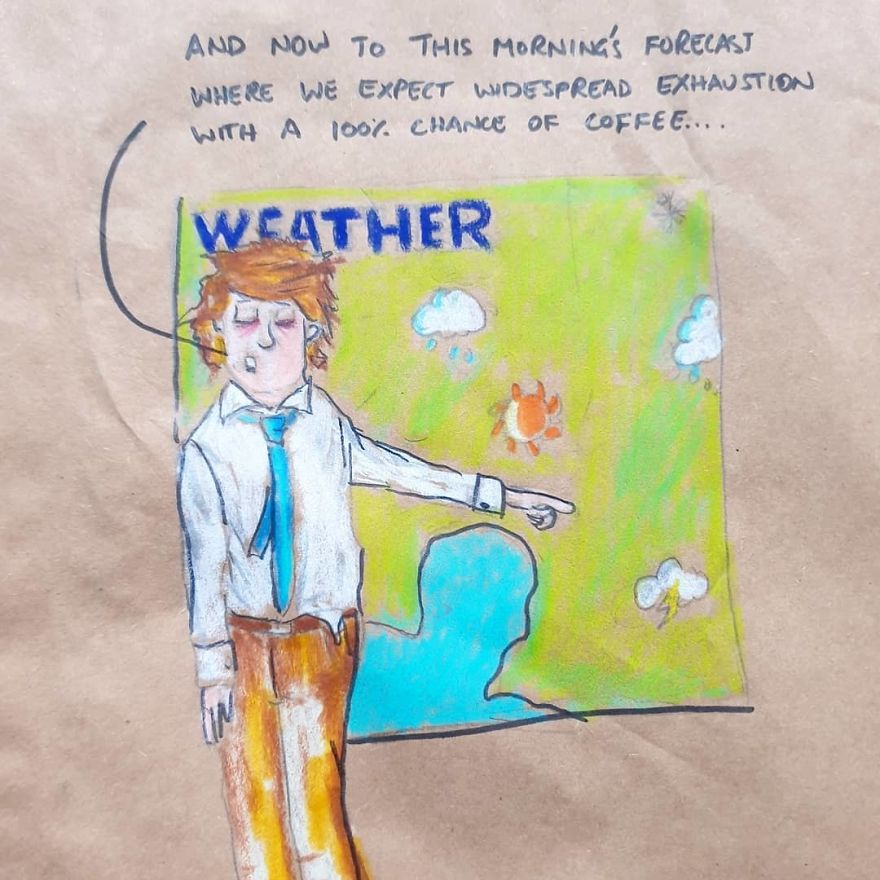 AND NOW TO THIS MORNING'S FORECAST
WHERE WE EXPECT WIDESPREAD EXHAUSTION
WITH A 100% CHANCE OF COFFEE....
WEATHER